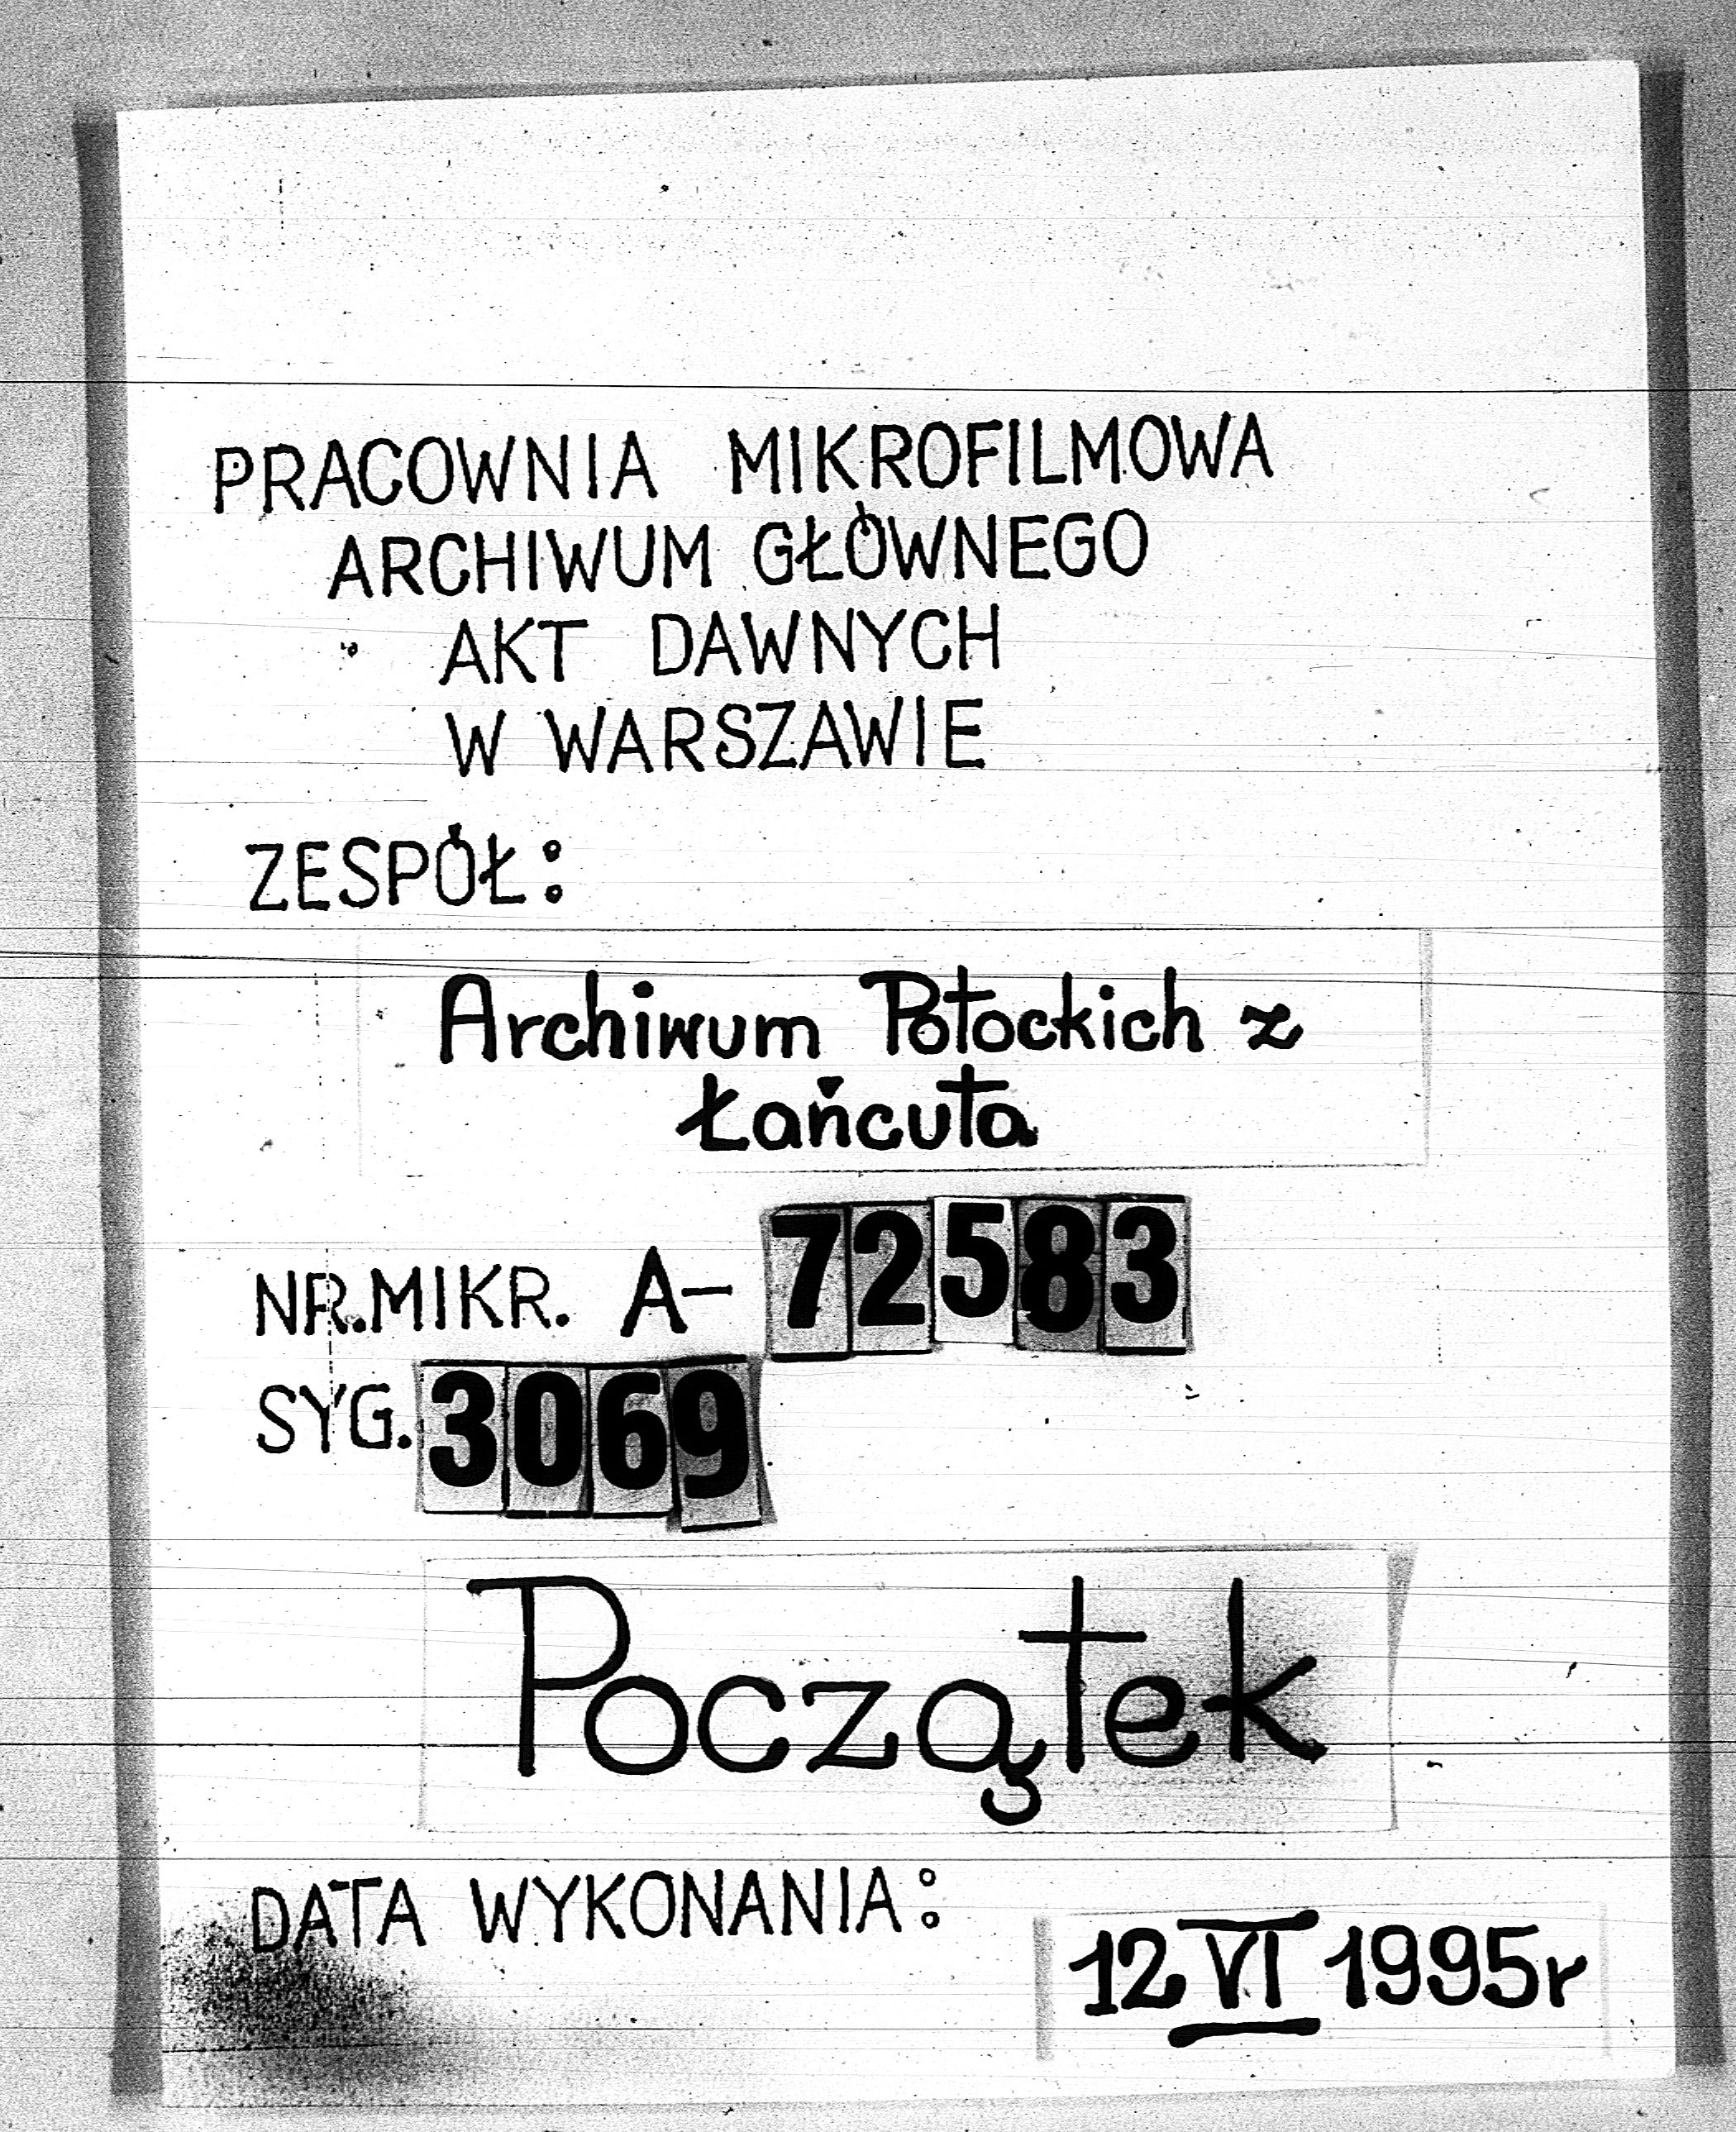 PRACOWNIA MIKROFILMOWA
ARCHIWUM GŁÓWNEGO
AKT DAWNYCH
W WARSZAWIE
ZESPÓŁ:
Archiwum Potockich z
Łańcuta
NR.MIKR. A- 72583
SYG. 3069
Początek
DATA WYKONANIA:
12 VI 1995r